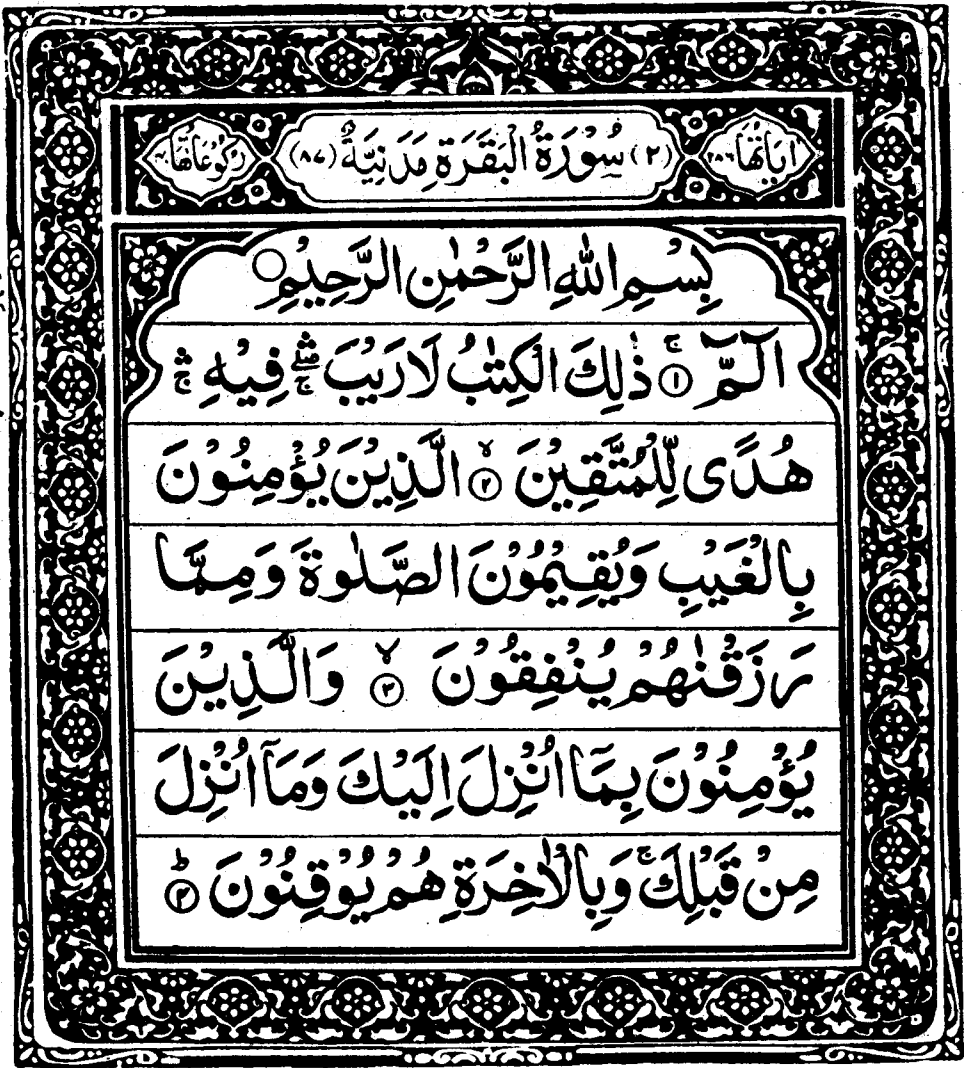 اٰيَاتُهَا ٢٨٦ (٢) سُوْرَةُ الْبَقَرَةِ مَدَنِيَّةٌ (٨٧) رُكُوْعَاتُهَا ٤٠
بِسْمِ اللّٰهِ الرَّحْمٰنِ الرَّحِيْمِ
الٓمّٓ ۚ ﴿۱﴾ ذٰلِكَ الْكِتٰبُ لَا رَيْبَ ۛۖۚ فِيْهِ ۛۚ
هُدًى لِّلْمُتَّقِيْنَ ۙ ﴿۲﴾ الَّذِيْنَ يُؤْمِنُوْنَ
بِالْغَيْبِ وَيُقِيْمُوْنَ الصَّلٰوةَ وَمِمَّا
رَزَقْنٰهُمْ يُنْفِقُوْنَ ۙ ﴿۳﴾ وَالَّذِيْنَ
يُؤْمِنُوْنَ بِمَآ اُنْزِلَ اِلَيْكَ وَمَآ اُنْزِلَ
مِنْ قَبْلِكَ ۚ وَبِالْاٰخِرَةِ هُمْ يُوْقِنُوْنَ ؕ ﴿۴﴾